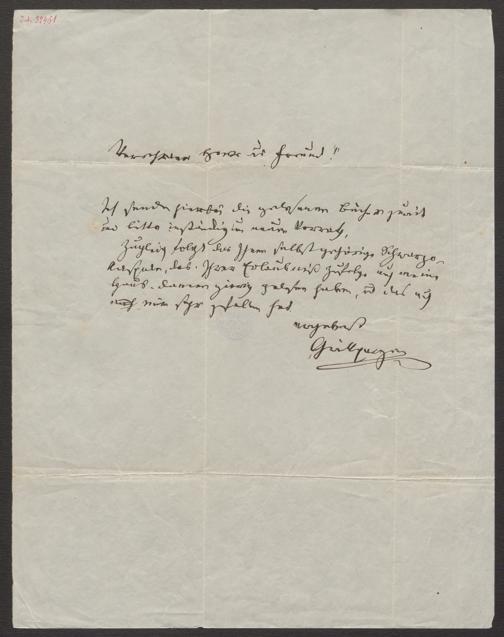 Verehrter Herr u. Freund!
Ich sende hierbei die gelesenen Bücher zurück
und bitte inständig um neuen Vorrath,
Zugleich folgt das Ihnen selbst gehörige Schwarzo-
das Ihrer Erlaubniß zufolge auch meine
Haus-Damen gelesen haben, und das auch
mir sehr gefallen hat
ergebenst
Grillparzer